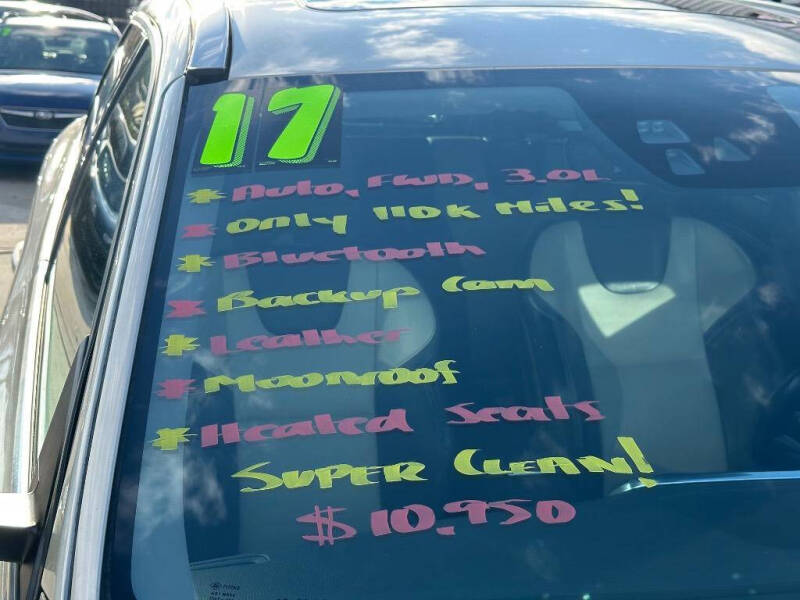 17
* Auto, FWD, 3.0L
* Only 110k Miles!
* Bluetooth
* Backup Cam
* Leather
* Moonroof
* Heated Seats
Super Clean!
$10,950